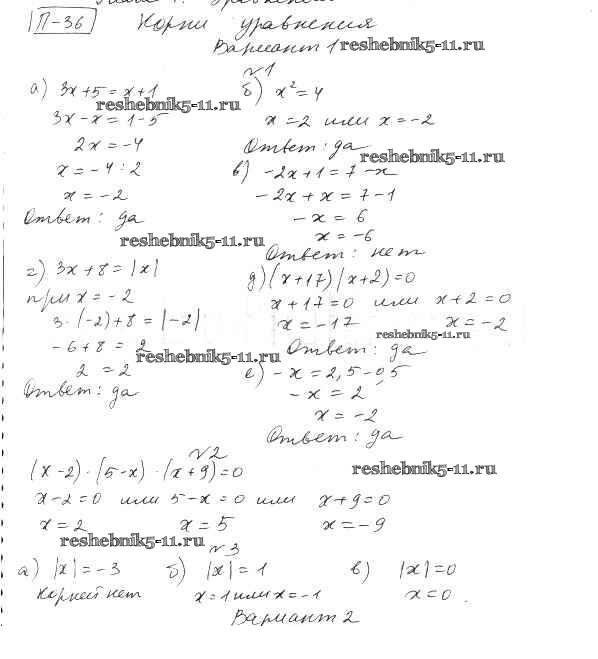 П-36 Корни уравнения
Вариант 1 reshebnik5-11.ru
№1
а) 3x+5=x+1
reshebnik5-11.ru
3x-x=1-5
2x=-4
x=-4:2
x=-2
Ответ: да
reshebnik5-11.ru
б) x²=4
x=2 или x=-2
Ответ: да
reshebnik5-11.ru
в) -2x+1=7-x
-2x+x=7-1
-x=6
x=-6
Ответ: нет
г) 3x+8=|x|
при x=-2
3·(-2)+8=|-2|
-6+8=2
reshebnik5-11.ru
2=2
Ответ: да
д) (x+17)(x+2)=0
x+17=0 или x+2=0
x=-17 x=-2
reshebnik5-11.ru
Ответ: да
е) -x=2,5-0,5
-x=2
x=-2
Ответ: да
№2
(x-2)·(5-x)·(x+9)=0
reshebnik5-11.ru
x-2=0 или 5-x=0 или x+9=0
x=2 x=5 x=-9
reshebnik5-11.ru
№3
а) |x|=-3 б) |x|=1 в) |x|=0
Корней нет x=1 или x=-1 x=0.
Вариант 2